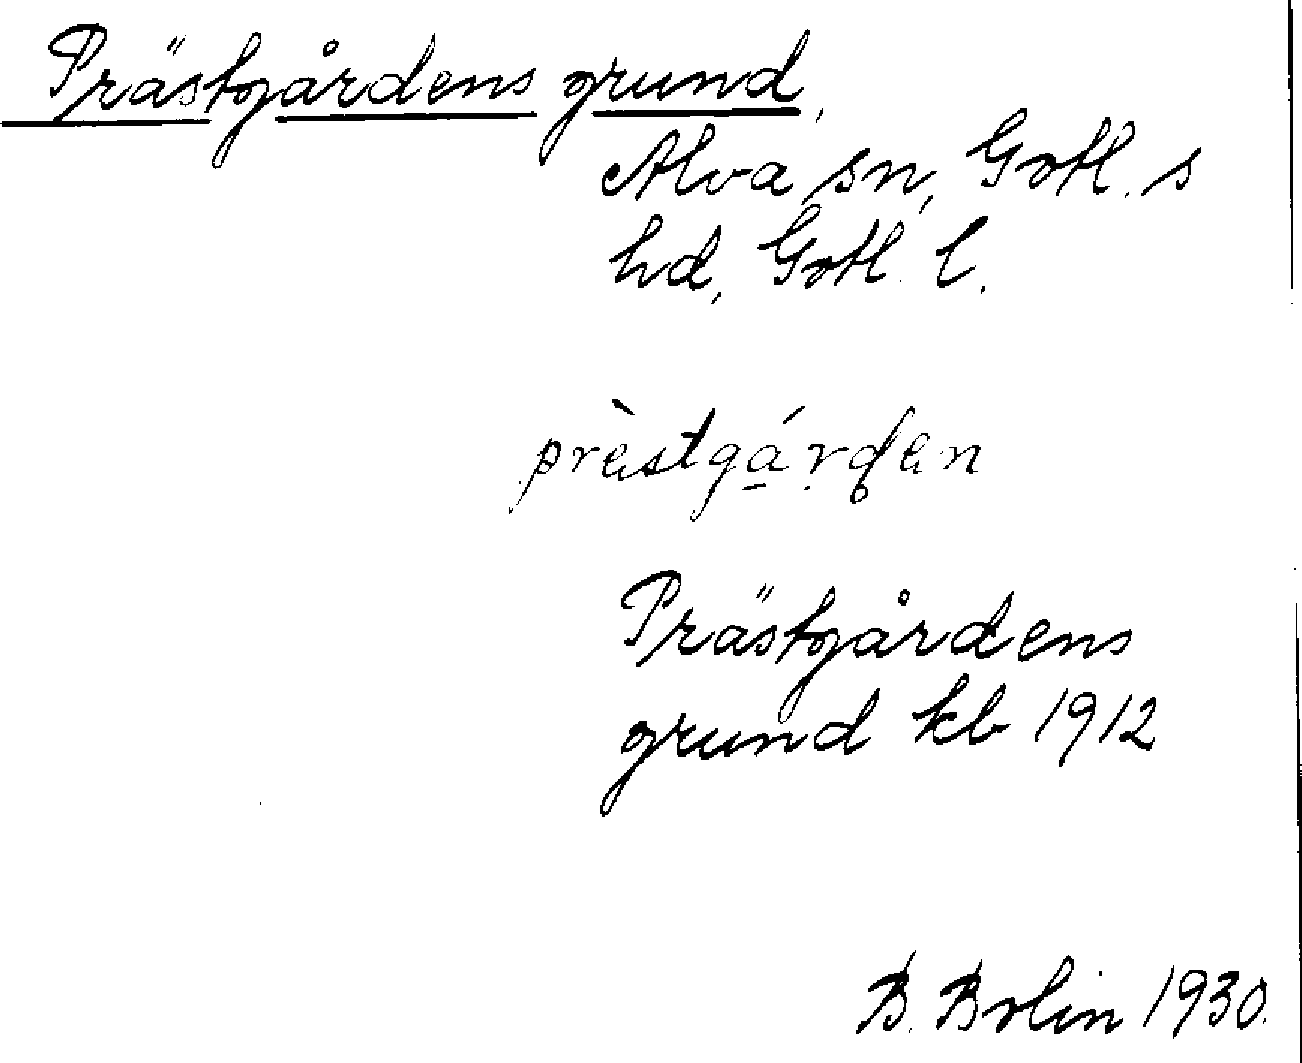 Prästgårdens grund,
Alva sn, Gotl. s
hd, Gotl. l.
prèstgá̱rden
Prästgårdens
grund kb 1912
B. Bolin 1930.